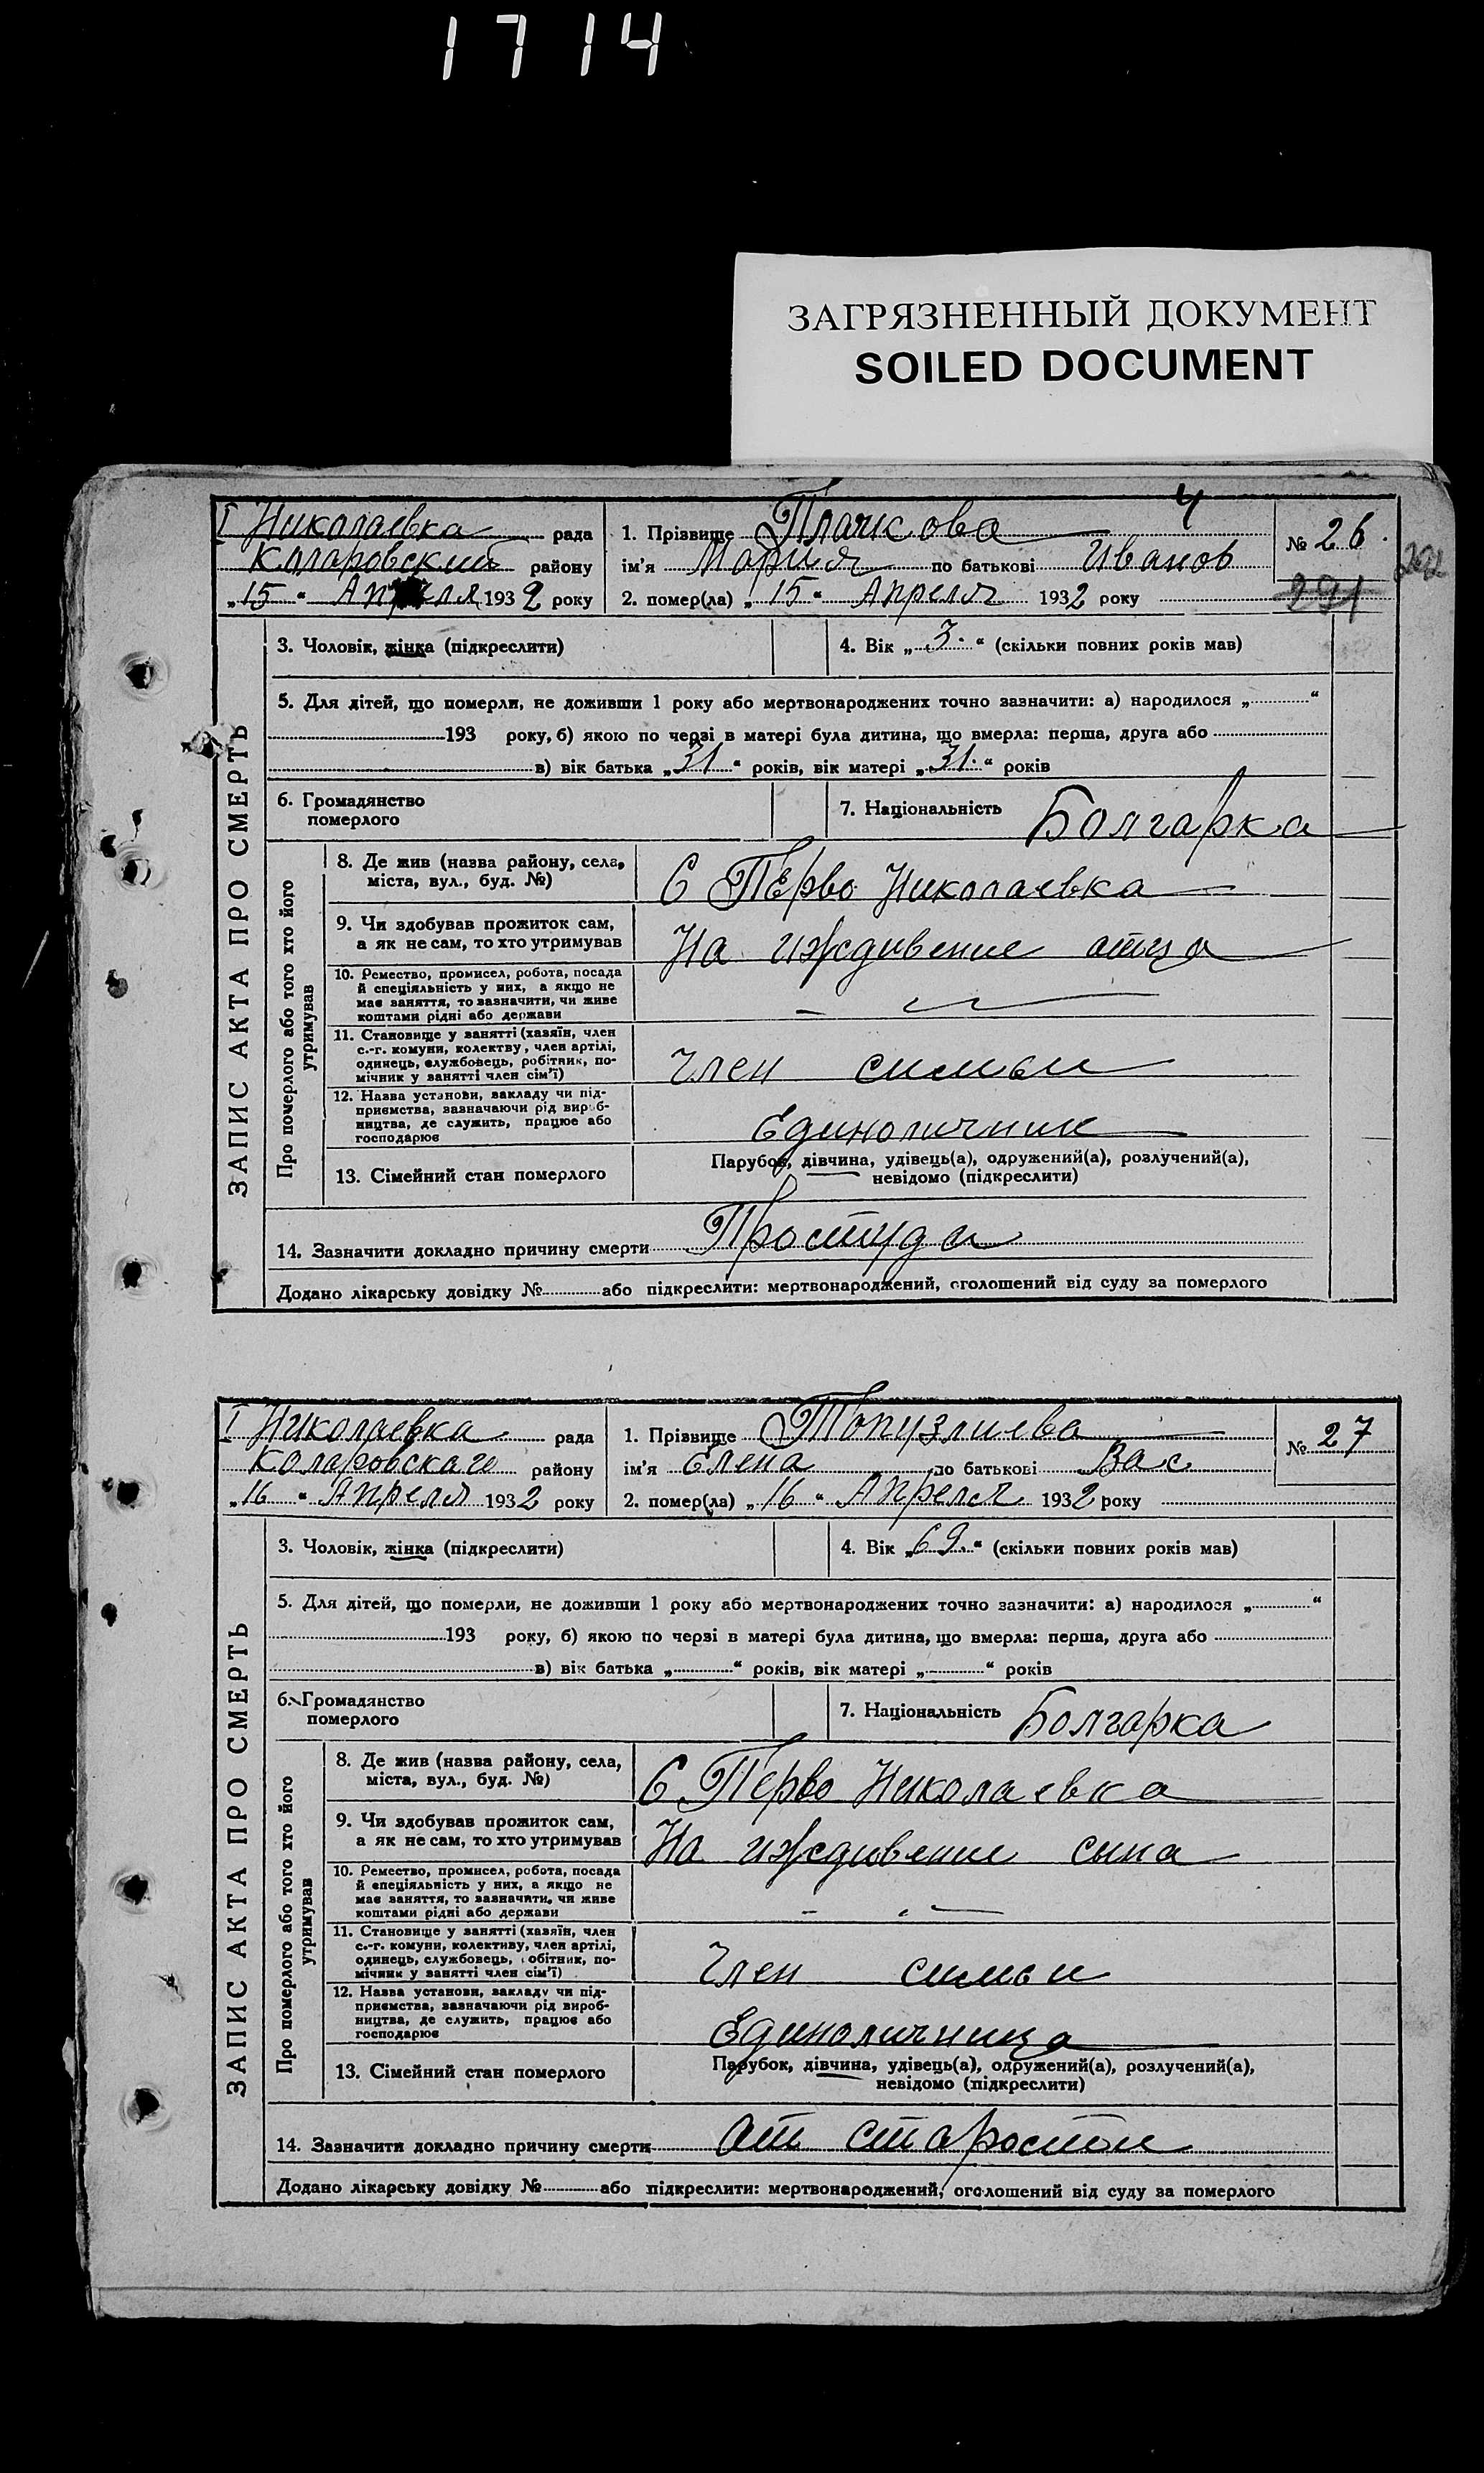 1714
ЗАГРЯЗНЕННЫЙ ДОКУМЕНТ
SOILED DOCUMENT
4
I Николаевка рада
Коларовский району
„15“ Апреля 1932 року
1. Прізвище Плачкова
ім'я Мария по батькові Иванов
2. помер(ла) „15“ Апреля 1932 року
№ 26.
291
ЗАПИС АКТА ПРО СМЕРТЬ
3. Чоловік, жінка (підкреслити)
4. Вік „3.“ (скільки повних років мав)
5. Для дітей, що померли, не доживши 1 року або мертвонароджених точно зазначити: а) народилося „ “
193 року, б) якою по черзі в матері була дитина, що вмерла: перша, друга або
в) вік батька „31“ років, вік матері „31.“ років
6. Громадянство
померлого
7. Національність Болгарка
Про померлого або того хто його
утримував
8. Де жив (назва району, села,
міста, вул., буд. №)
С Перво Николаевка
9. Чи здобував прожиток сам,
а як не сам, то хто утримував
На иждивение отца
10. Ремество, промисел, робота, посада
й спеціяльність у них, а якщо не
має заняття, то зазначити, чи живе
коштами рідні або держави
11. Становище у занятті (хазяїн, член
с.-г. комуни, колектву, член артілі,
одинець, службовець, робітник, по-
мічник у занятті член сім'ї)
Член симьи
12. Назва установи, закладу чи під-
приємства, зазначаючи рід вироб-
ництва, де служить, працює або
господарює
Единоличник
13. Сімейний стан померлого
Парубок, дівчина, удівець(а), одружений(а), розлучений(а),
невідомо (підкреслити)
14. Зазначити докладно причину смерти Простуди
Додано лікарську довідку № або підкреслити: мертвонароджений, оголошений від суду за померлого
I Николаевка рада
Коларовскаго району
„16“ Апреля 1932 року
1. Прізвище Топузлиева
ім'я Елена по батькові Вас
2. помер(ла) „16“ Апреля 1932 року
№ 27
ЗАПИС АКТА ПРО СМЕРТЬ
3. Чоловік, жінка (підкреслити)
4. Вік „69.“ (скільки повних років мав)
5. Для дітей, що померли, не доживши 1 року або мертвонароджених точно зазначити: а) народилося „ “
193 року, б) якою по черзі в матері була дитина, що вмерла: перша, друга або
в) вік батька „ “ років, вік матері „ “ років
6. Громадянство
померлого
7. Національність Болгарка
Про померлого або того хто його
утримував
8. Де жив (назва району, села,
міста, вул., буд. №)
С. Перво Николаевка
9. Чи здобував прожиток сам,
а як не сам, то хто утримував
На иждивении сына
10. Ремество, промисел, робота, посада
й спеціяльність у них, а якщо не
має заняття, то зазначити, чи живе
коштами рідні або держави
11. Становище у занятті (хазяїн, член
с.-г. комуни, колективу, член артілі,
одинець, службовець, робітник, по-
мічник у занятті член сім'ї)
Член симьи
12. Назва установи, закладу чи під-
приємства, зазначаючи рід вироб-
ництва, де служить, працює або
господарює
Единоличница
13. Сімейний стан померлого
Парубок, дівчина, удівець(а), одружений(а), розлучений(а),
невідомо (підкреслити)
14. Зазначити докладно причину смерти От старости
Додано лікарську довідку № або підкреслити: мертвонароджений, оголошений від суду за померлого